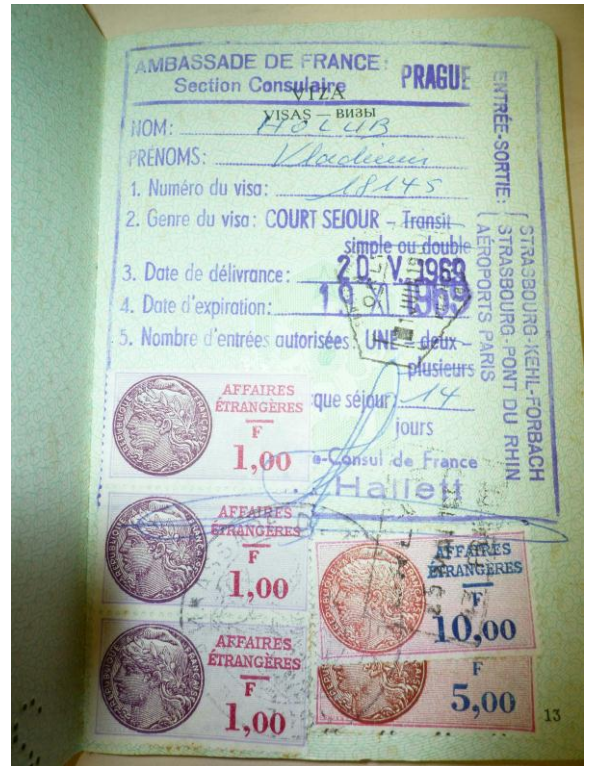 AMBASSADE DE FRANCE:
Section Consulaire
PRAGUE
VIZA
VISAS — ВИЗЫ
NOM: HOLUB
PRÉNOMS: Vladimir
1. Numéro du visa: 18145
2. Genre du visa: COURT SEJOUR – Transit
simple ou double
3. Date de délivrance: 20. V. 1969
4. Date d'expiration: 19 1969
5. Nombre d'entrées autorisées UNE – deux –
plusieurs
que séjour: 14
jours
e-Consul de France
Hallett
ENTRÉE-SORTIE:
STRASBOURG-KEHL-FORBACH
STRASBOURG-PONT DU RHIN
AÉROPORTS PARIS
AFFAIRES
ÉTRANGÈRES
F
1,00
AFFAIRES
ÉTRANGÈRES
F
1,00
AFFAIRES
ÉTRANGÈRES
F
1,00
AFFAIRES
ÉTRANGÈRES
F
10,00
F
5,00
13